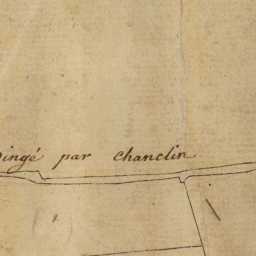 ingé par chanclin